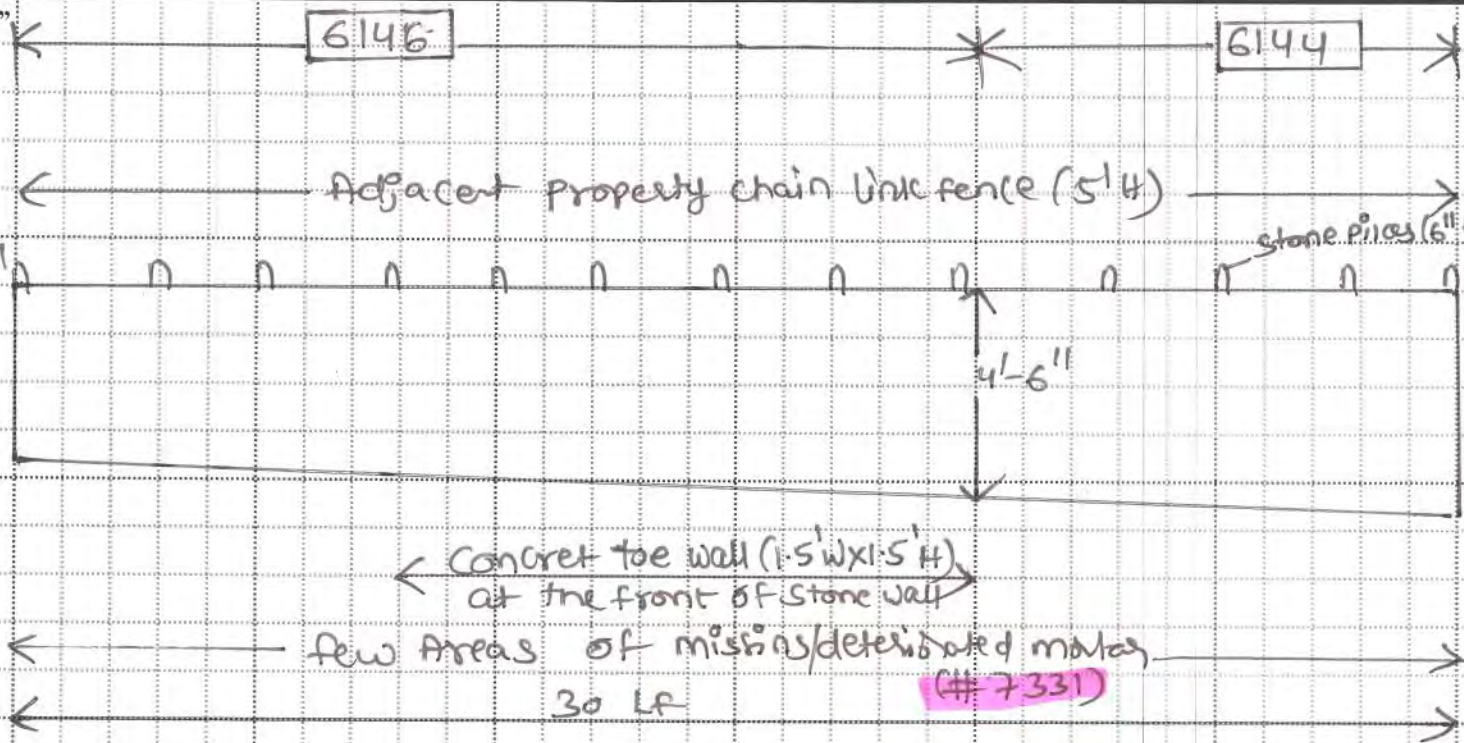 6146
6144
Adjacent property chain link fence (5'H)
stone pilces (6"
4'-6"
Concret toe wall (1.5'Wx1.5'H)
at the front of stone wall
few Areas of missing/deteriorated mortar
(#7331)
30 LF